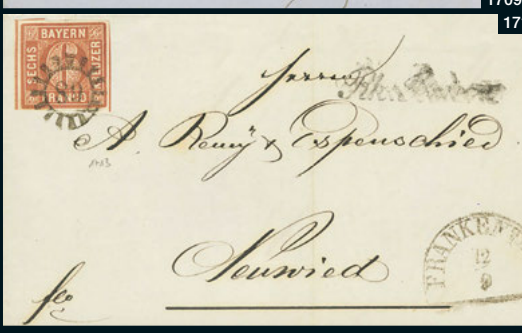 1709
17
BAYERN
SECHS
KREUZER
FRANCO
Herrn
A. Remÿ & Espenschied
1713
Neuwied
fco
FRANKENT
12
9